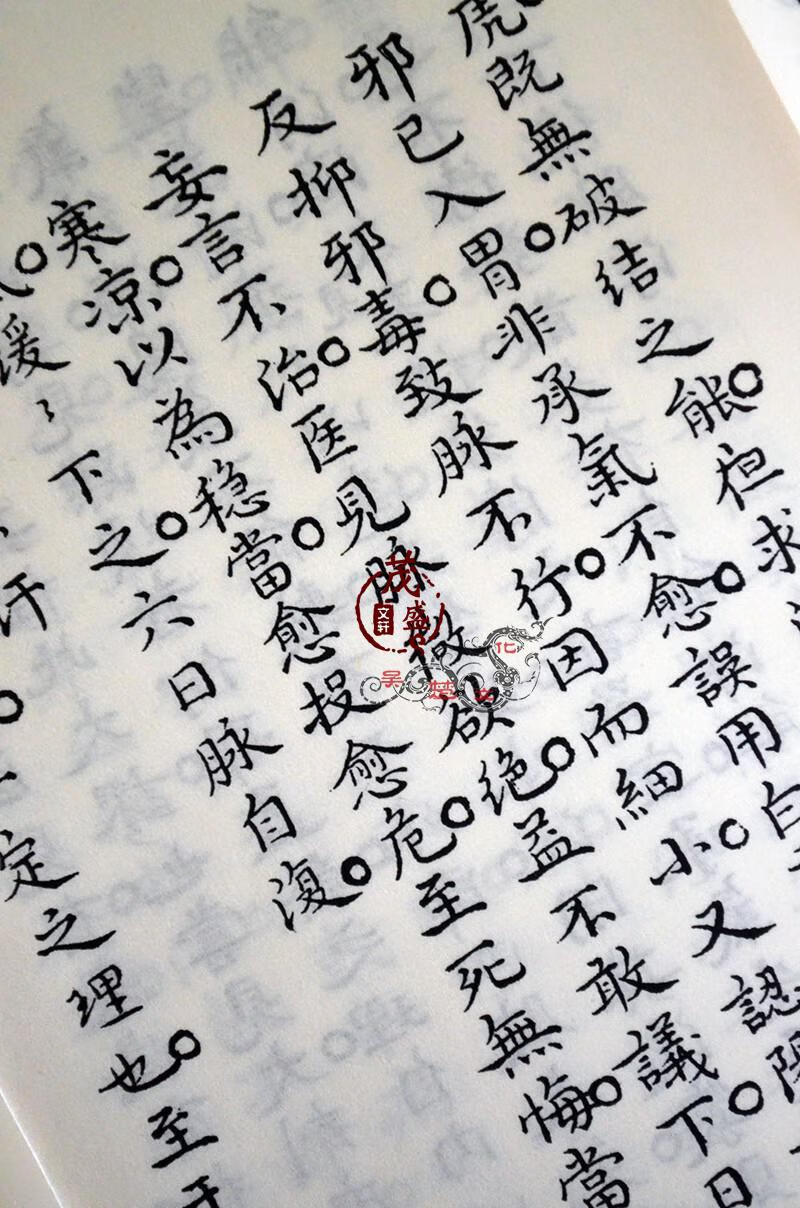 虎既無破结之能。但求
邪已入胃。非承氣不愈。誤用白
反抑邪毒。致脉不行。因而細小。又認陽
妄言不治。医見脉微欲绝。益不敢議下。日
寒凉。以為稳當。愈投愈危。至死無悔。當
。缓〻下之。六日脉自復。
汗。一定之理也。至于